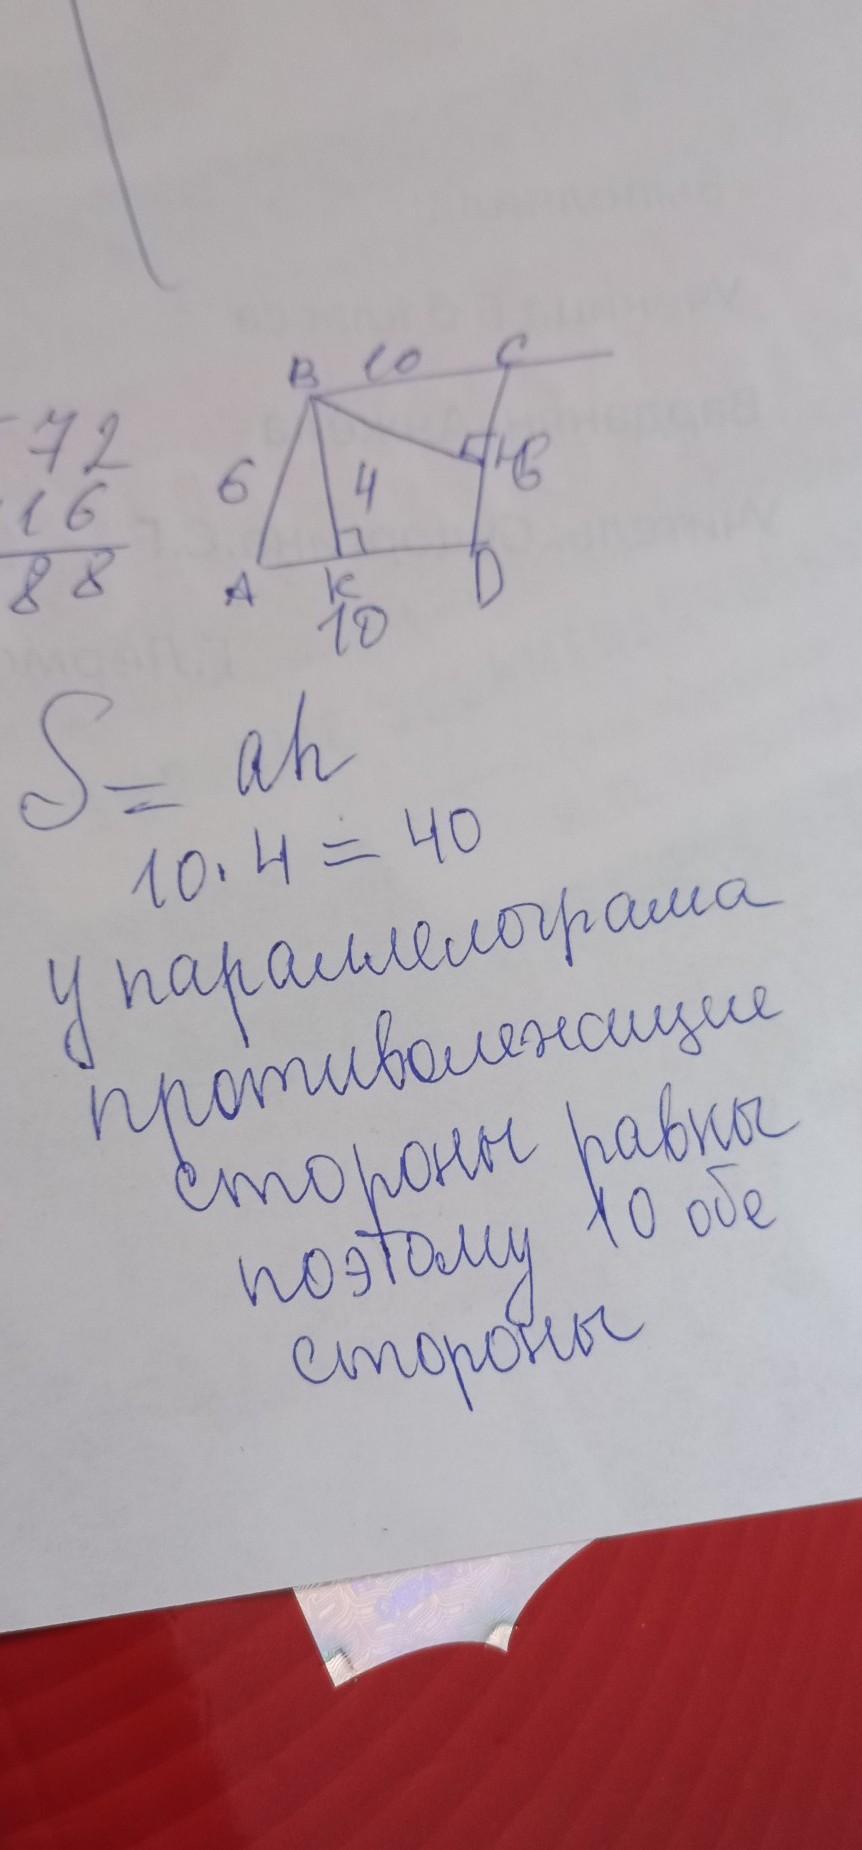 72
16
88
B 10 C
6 4 H 6
A K D
10
S = ah
10 · 4 = 40
у параллелограма
противолежащие
стороны равны
поэтому 10 обе
стороны